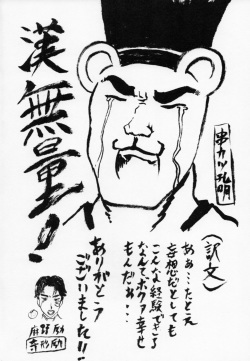 漢無量!
串カツ孔明
(訳文)
ああ…たとえ
妄想だとしても
こんな経験できる
なんてボクァ幸せ
もんだぁ…
ありがとう
ございました!!